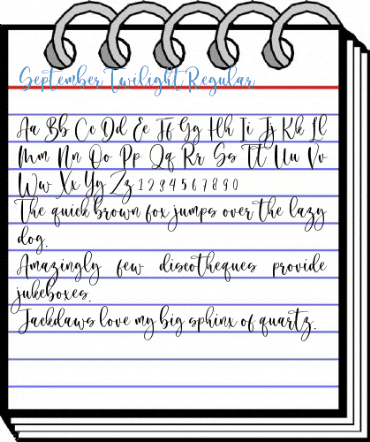 September Twilight Regular
Aa Bb Cc Dd Ee Ff Gg Hh Ii Jj Kk Ll
Mm Nn Oo Pp Qq Rr Ss Tt Uu Vv
Ww Xx Yy Zz 1 2 3 4 5 6 7 8 9 0
The quick brown fox jumps over the lazy
dog.
Amazingly few discotheques provide
jukeboxes.
Jackdaws love my big sphinx of quartz.